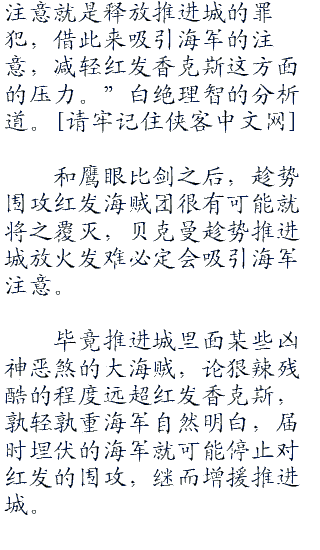 注意就是释放推进城的罪
犯，借此来吸引海军的注
意，减轻红发香克斯这方面
的压力。”白绝理智的分析
道。[请牢记住侠客中文网]
和鹰眼比剑之后，趁势
围攻红发海贼团很有可能就
将之覆灭，贝克曼趁势推进
城放火发难必定会吸引海军
注意。
毕竟推进城里面某些凶
神恶煞的大海贼，论狠辣残
酷的程度远超红发香克斯，
孰轻孰重海军自然明白，届
时埋伏的海军就可能停止对
红发的围攻，继而增援推进
城。